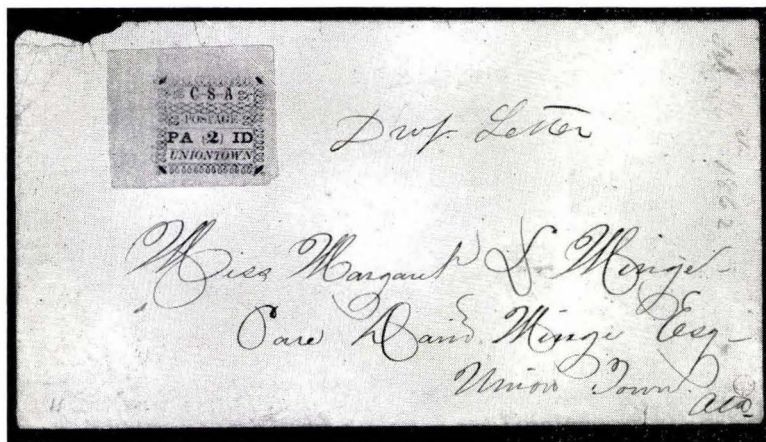 C-S-A
POSTAGE
PA (2) ID
UNIONTOWN
Drop Letter
Miss Margaret L Minge
Care David Minge Esq
Union Town
Ala
1862
11